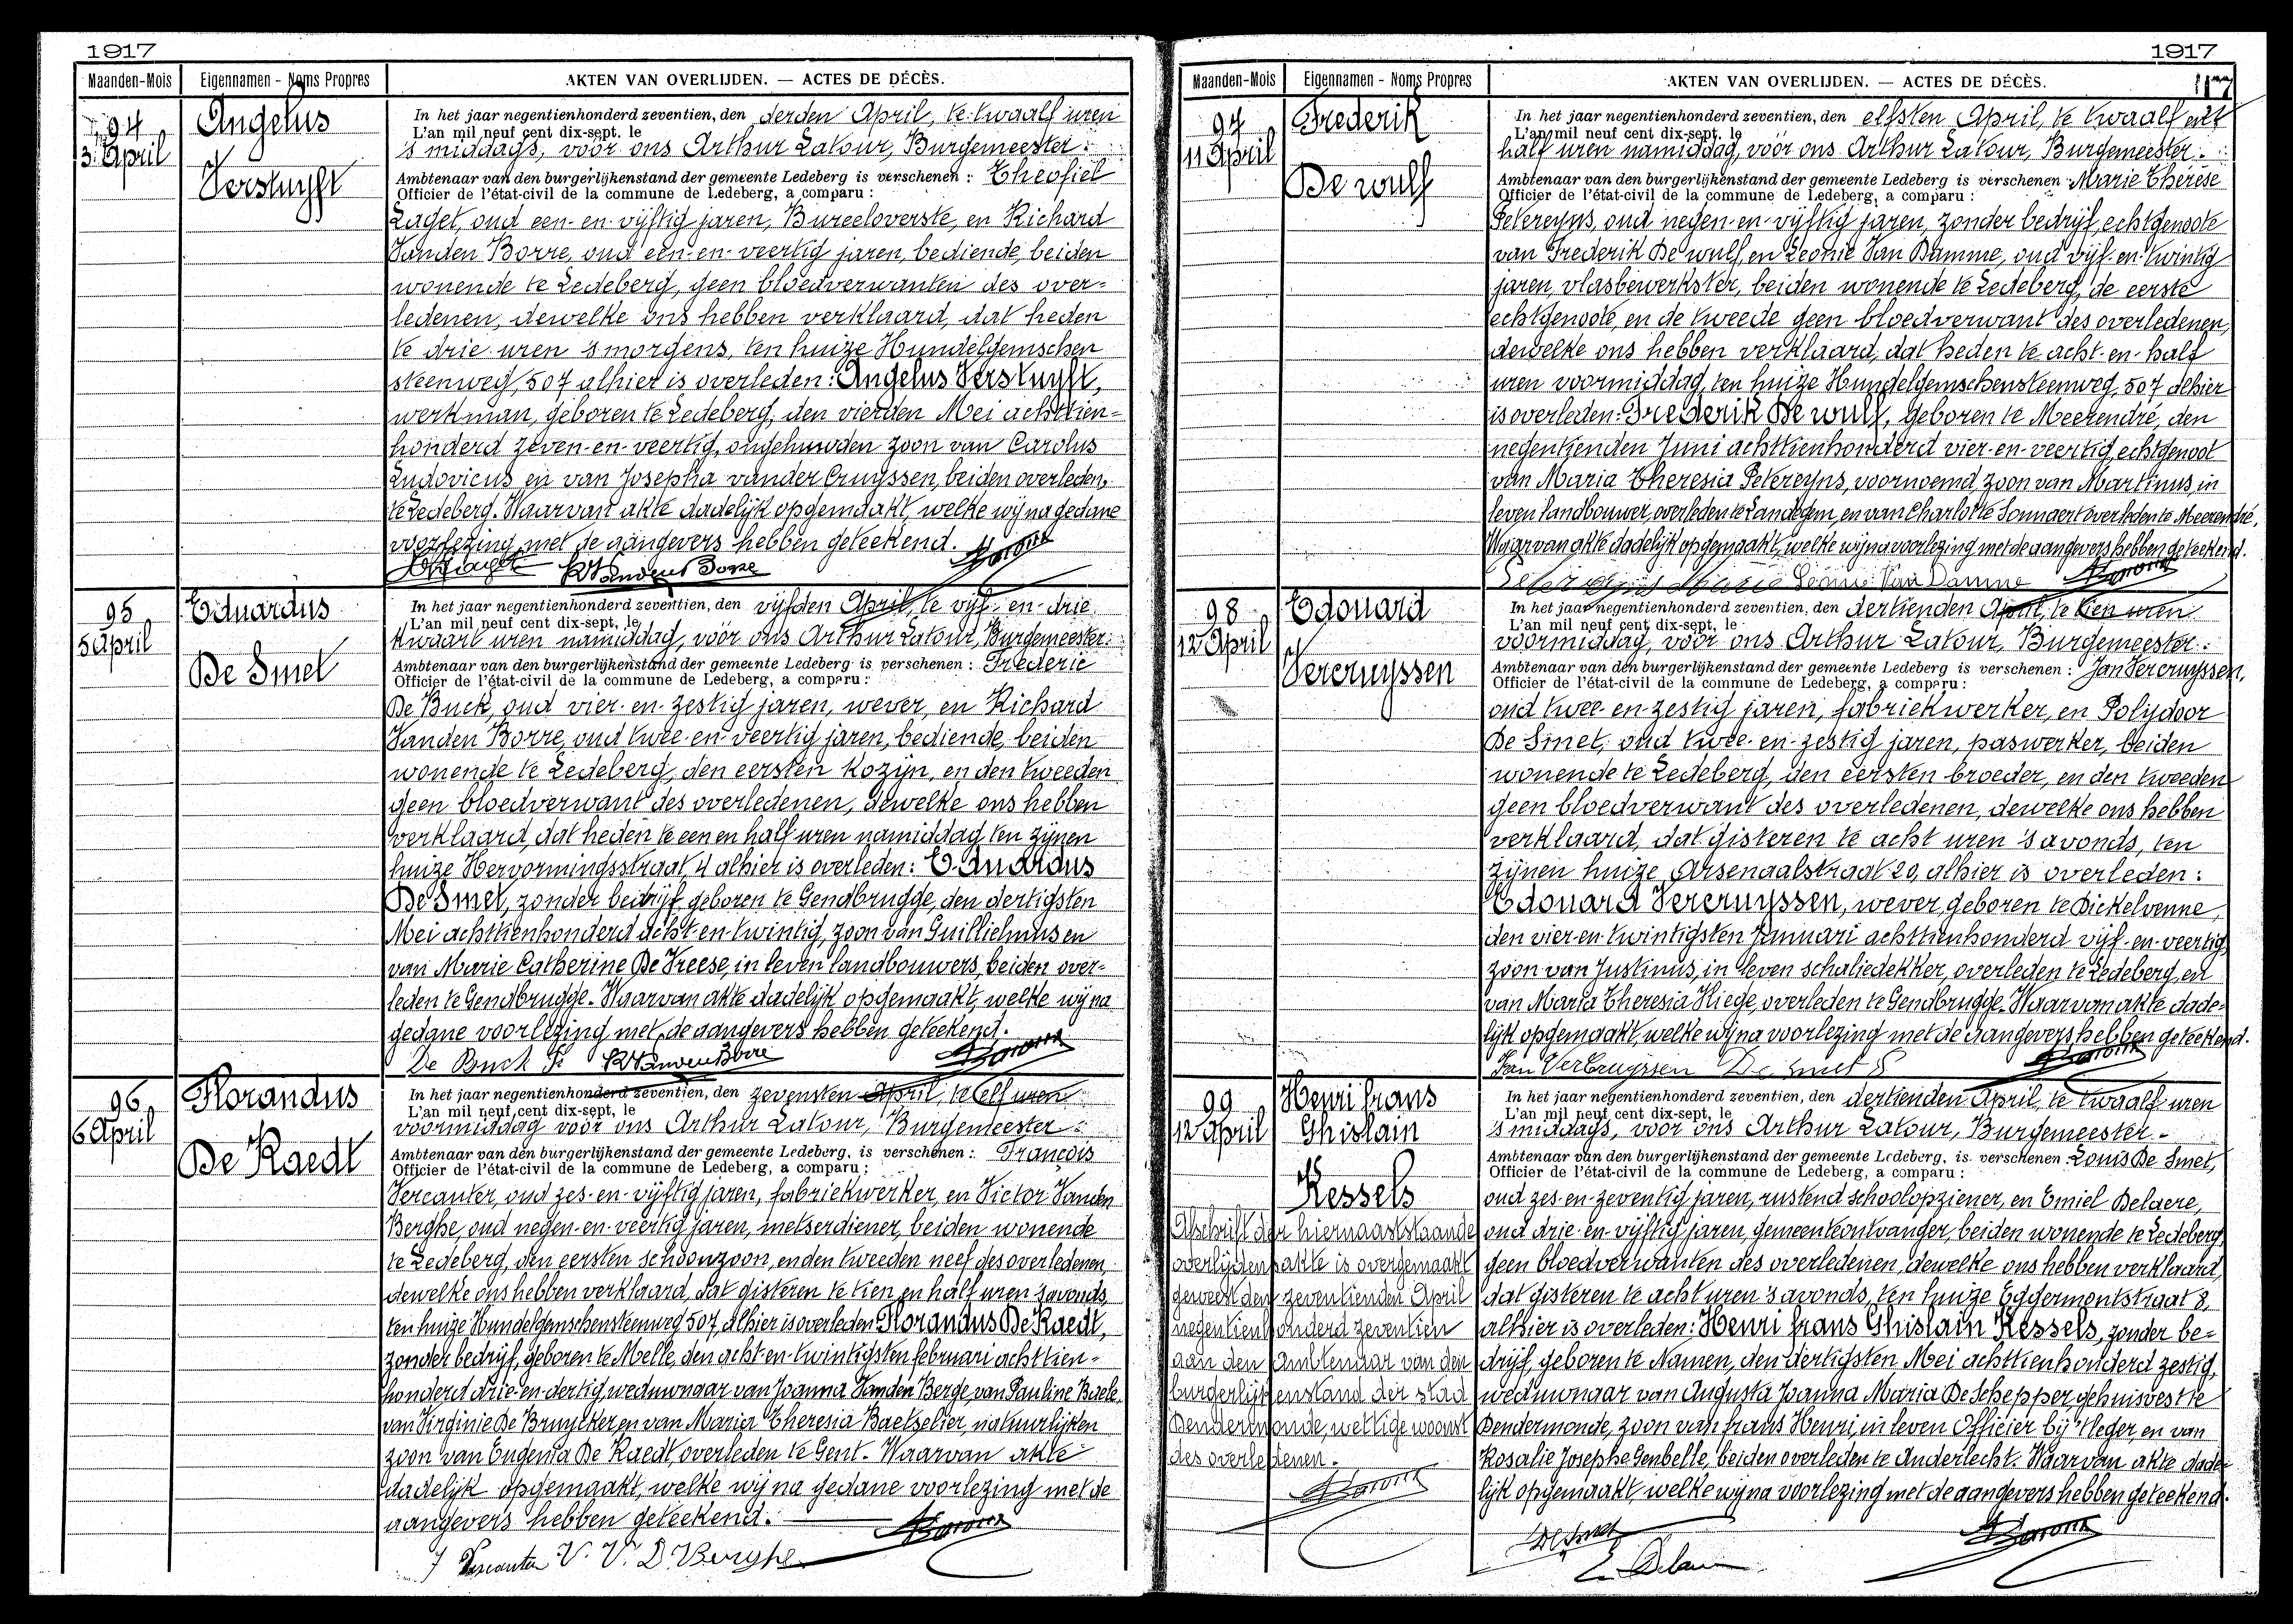 1917
Maanden-Mois Eigennamen - Noms Propres AKTEN VAN OVERLIJDEN. — ACTES DE DÉCÈS.
94
3 April
Angelus
Verstuyft
In het jaar negentienhonderd zeventien, den derden April, te twaalf uren
L'an mil neuf cent dix-sept, le
's middags, vóór ons Arthur Latour, Burgemeester.
Ambtenaar van den burgerlijkenstand der gemeente Ledeberg is verschenen : Theofiel
Officier de l'état-civil de la commune de Ledeberg, a comparu :
Laget, oud een-en-vijftig jaren, Bureeloverste, en Richard
Vanden Borre, oud een-en-veertig jaren, bediende, beiden
wonende te Ledeberg, geen bloedverwanten des over-
ledenen, dewelke ons hebben verklaard, dat heden
te drie uren 's morgens, ten huize Hundelgemschen
steenweg, 507 alhier is overleden: Angelus Verstuyft,
werkman, geboren te Ledeberg, den vierden Mei achttien-
honderd zeven-en-veertig, ongehuwden zoon van Carolus
Ludovicus en van Josepha vander Cruyssen, beiden overleden,
te Ledeberg. Waarvan akte dadelijk opgemaakt, welke wij na gedane
voorlezing met de aangevers hebben geteekend.
RVandenBorre
95
5 April
Eduardus
De Smet
In het jaar negentienhonderd zeventien, den vijfden April, te vijf-en-drie
L'an mil neuf cent dix-sept, le
kwaart uren namiddag, vóór ons Arthur Latour, Burgemeester.
Ambtenaar van den burgerlijkenstand der gemeente Ledeberg is verschenen : Frederic
Officier de l'état-civil de la commune de Ledeberg, a comparu :
De Buck, oud vier-en-zestig jaren, wever, en Richard
Vanden Borre, oud twee-en-veertig jaren, bediende, beiden
wonende te Ledeberg, den eersten kozijn, en den tweeden
geen bloedverwant des overledenen, dewelke ons hebben
verklaard, dat heden te een en half uren namiddag, ten zijnen
huize Hervormingsstraat, 4 alhier is overleden: Eduardus
De Smet, zonder bedrijf, geboren te Gendbrugge, den dertigsten
Mei achttienhonderd acht-en-twintig, zoon van Guillielmus en
van Marie Catherine De Vreese, in leven landbouwers, beiden over-
leden te Gendbrugge. Waarvan akte dadelijk opgemaakt, welke wij na
gedane voorlezing met de aangevers hebben geteekend.
De Buck Fr RVandenBorre
96
6 April
Florandus
De Raedt
In het jaar negentienhonderd zeventien, den zevensten April, te elf uren
L'an mil neuf cent dix-sept, le
voormiddag vóór ons Arthur Latour, Burgemeester.
Ambtenaar van den burgerlijkenstand der gemeente Ledeberg, is verschenen : François
Officier de l'état-civil de la commune de Ledeberg, a comparu :
Vercauter, oud zes-en-vijftig jaren, fabriekwerker, en Victor Vanden
Berghe, oud negen-en-veertig jaren, metserdiener, beiden wonende
te Ledeberg, den eersten schoonzoon, en den tweeden neef des overledenen,
dewelke ons hebben verklaard, dat gisteren te tien en half uren 's avonds,
ten huize Hundelgemschensteenweg 507, alhier is overleden: Florandus De Raedt,
zonder bedrijf, geboren te Melle, den acht-en-twintigsten februari achttien-
honderd drie-en-dertig, weduwnaar van Joanna Vanden Berge, van Pauline Baele,
van Virginie De Bruycker en van Maria Theresia Baetselier, natuurlijken
zoon van Eugenia De Raedt, overleden te Gent. Waarvan akte
dadelijk opgemaakt, welke wij na gedane voorlezing met de
aangevers hebben geteekend.
Vercauter V. V. D. Berghe
1917
Maanden-Mois Eigennamen - Noms Propres AKTEN VAN OVERLIJDEN. — ACTES DE DÉCÈS. 117
97
11 April
Frederik
De wulf
In het jaar negentienhonderd zeventien, den elfsten April, te twaalf en
L'an mil neuf cent dix-sept, le
half uren namiddag, vóór ons Arthur Latour, Burgemeester.
Ambtenaar van den burgerlijkenstand der gemeente Ledeberg is verschenen : Marie Therese
Officier de l'état-civil de la commune de Ledeberg, a comparu :
Petereyns, oud negen-en-vijftig jaren, zonder bedrijf, echtgenoote
van Frederik De wulf, en Leonie Van Damme, oud vijf-en-twintig
jaren, vlasbewerkster, beiden wonende te Ledeberg, de eerste
echtgenoote, en de tweede geen bloedverwant des overledenen,
dewelke ons hebben verklaard, dat heden te acht-en-half
uren voormiddag, ten huize Hundelgemschensteenweg, 507 alhier
is overleden: Frederik De wulf, geboren te Meerendré, den
negentienden Juni achttienhonderd vier-en-veertig, echtgenoot
van Maria Theresia Petereyns, voornoemd, zoon van Martinus, in
leven landbouwer, overleden te Landegem, en van Charlotte Sonnaert overleden te Meerendré.
Waarvan akte dadelijk opgemaakt, welke wij na voorlezing met de aangevers hebben geteekend.
Marie Leonie Van Damme
98
12 April
Edouard
Vercruyssen
In het jaar negentienhonderd zeventien, den dertienden April, te tien uren
L'an mil neuf cent dix-sept, le
voormiddag, vóór ons Arthur Latour, Burgemeester.
Ambtenaar van den burgerlijkenstand der gemeente Ledeberg is verschenen : Jan Vercruyssen,
Officier de l'état-civil de la commune de Ledeberg, a comparu :
oud twee-en-zestig jaren, fabriekwerker, en Polydoor
De Smet, oud twee-en-zestig jaren, paswerker, beiden
wonende te Ledeberg, den eersten broeder, en den tweeden
geen bloedverwant des overledenen, dewelke ons hebben
verklaard, dat gisteren te acht uren 's avonds, ten
zijnen huize, Arsenaalstraat 20, alhier is overleden:
Edouard Vercruyssen, wever, geboren te Dickelvenne,
den vier-en-twintigsten Januari achttienhonderd vijf-en-veertig,
zoon van Justinus, in leven schaliedekker, overleden te Ledeberg, en
van Maria Theresia Hiege, overleden te Gendbrugge. Waarvan akte dade-
lijk opgemaakt, welke wij na voorlezing met de aangevers hebben geteekend.
Jan Vercruyssen De Smet P
99
12 April
Henri frans
Ghislain
Kessels
Afschrift der hiernaaststaande
overlijdensakte is overgemaakt
geweest den zeventienden April
negentienhonderd zeventien
aan den Ambtenaar van den
burgerlijkenstand der stad
Dendermonde, wettige woonst
des overledenen.
In het jaar negentienhonderd zeventien, den dertienden April, te twaalf uren
L'an mil neuf cent dix-sept, le
's middags, vóór ons Arthur Latour, Burgemeester.
Ambtenaar van den burgerlijkenstand der gemeente Ledeberg, is verschenen : Louis De Smet,
Officier de l'état-civil de la commune de Ledeberg, a comparu :
oud zes-en-zeventig jaren, rustend schoolopziener, en Emiel Delaere,
oud drie-en-vijftig jaren, gemeenteontvanger, beiden wonende te Ledeberg,
geen bloedverwanten des overledenen, dewelke ons hebben verklaard,
dat gisteren te acht uren 's avonds, ten huize Eggermontstraat 8,
alhier is overleden: Henri frans Ghislain Kessels, zonder be-
drijf, geboren te Namen, den dertigsten Mei achttienhonderd zestig,
weduwnaar van Augusta Joanna Maria De Schepper, gehuisvest te
Dendermonde, zoon van frans Henri, in leven Officier bij 't leger, en van
Rosalie Josephe Genbelle, beiden overleden te Anderlecht. Waarvan akte dade-
lijk opgemaakt, welke wij na voorlezing met de aangevers hebben geteekend.
DeSmet
E. Delaere